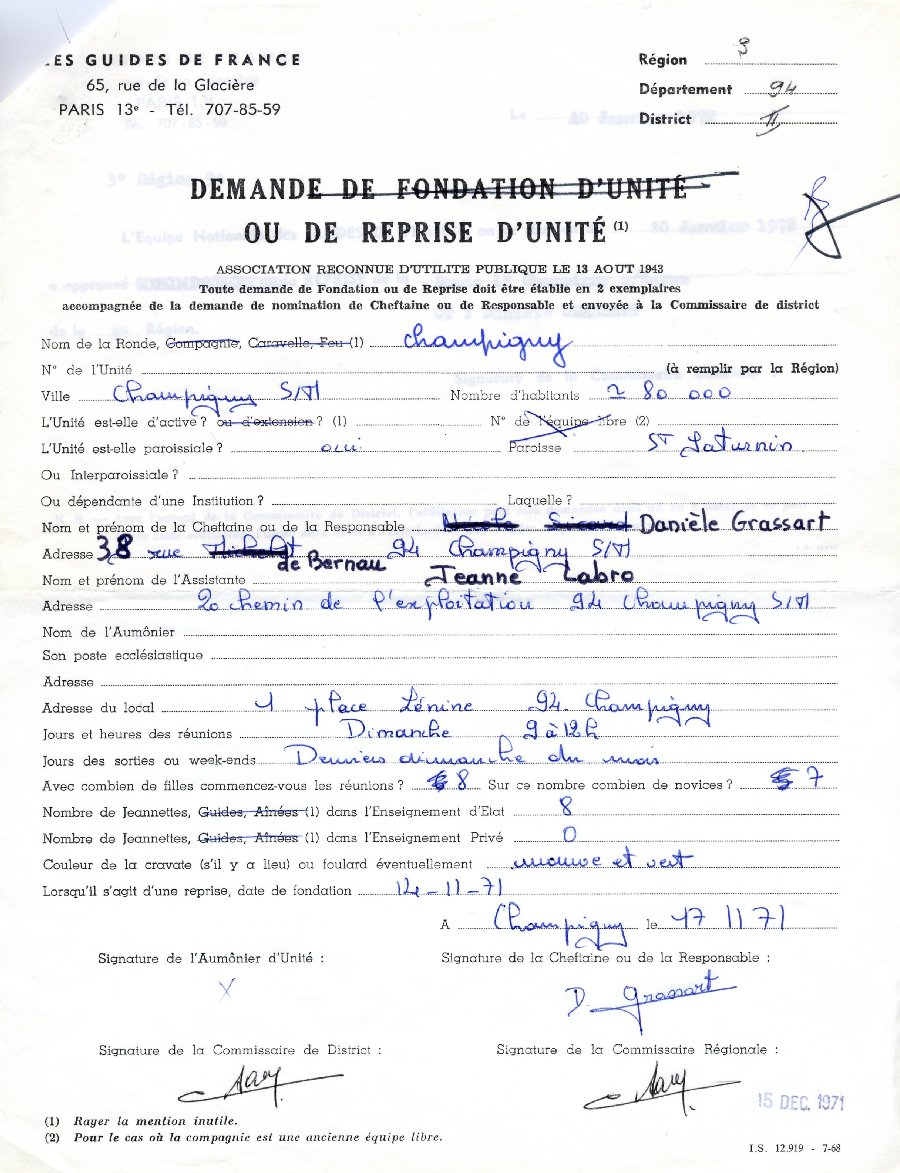 ES GUIDES DE FRANCE
65, rue de la Glacière
PARIS 13e - Tél. 707-85-59
Région 3
Département 94
District II
DEMANDE DE FONDATION D'UNITÉ
OU DE REPRISE D'UNITÉ (1)
ASSOCIATION RECONNUE D'UTILITE PUBLIQUE LE 13 AOUT 1943
Toute demande de Fondation ou de Reprise doit être établie en 2 exemplaires
accompagnée de la demande de nomination de Cheftaine ou de Responsable et envoyée à la Commissaire de district
Nom de la Ronde, Compagnie, Caravelle, Feu (1) Champigny
N° de l'Unité (à remplir par la Région)
Ville Champigny S/M Nombre d'habitants ≃ 80 000
L'Unité est-elle d'active ? ou d'extension ? (1) N° de l'équipe libre (2)
L'Unité est-elle paroissiale ? oui Paroisse St Saturnin
Ou Interparoissiale ?
Ou dépendante d'une Institution ? Laquelle ?
Nom et prénom de la Cheftaine ou de la Responsable Danièle Grassart
Adresse 38 rue de Bernau 94 Champigny S/M
Nom et prénom de l'Assistante Jeanne Labro
Adresse 20 chemin de l'exploitation 94 Champigny S/M
Nom de l'Aumônier
Son poste ecclésiastique
Adresse
Adresse du local 1 place Lénine 94. Champigny
Jours et heures des réunions Dimanche 9 à 12h
Jours des sorties ou week-ends Derniers dimanche du mois
Avec combien de filles commencez-vous les réunions ? 8 Sur ce nombre combien de novices ? 7
Nombre de Jeannettes, Guides, Aînées (1) dans l'Enseignement d'Etat 8
Nombre de Jeannettes, Guides, Aînées (1) dans l'Enseignement Privé 0
Couleur de la cravate (s'il y a lieu) ou foulard éventuellement mauve et vert
Lorsqu'il s'agit d'une reprise, date de fondation 14-11-71
A Champigny le 17 11 71
Signature de l'Aumônier d'Unité :
Signature de la Cheftaine ou de la Responsable :
X
D. Grassart
Signature de la Commissaire de District :
Signature de la Commissaire Régionale :
15 DEC. 1971
(1) Rayer la mention inutile.
(2) Pour le cas où la compagnie est une ancienne équipe libre.
I.S. 12.919 - 7-68